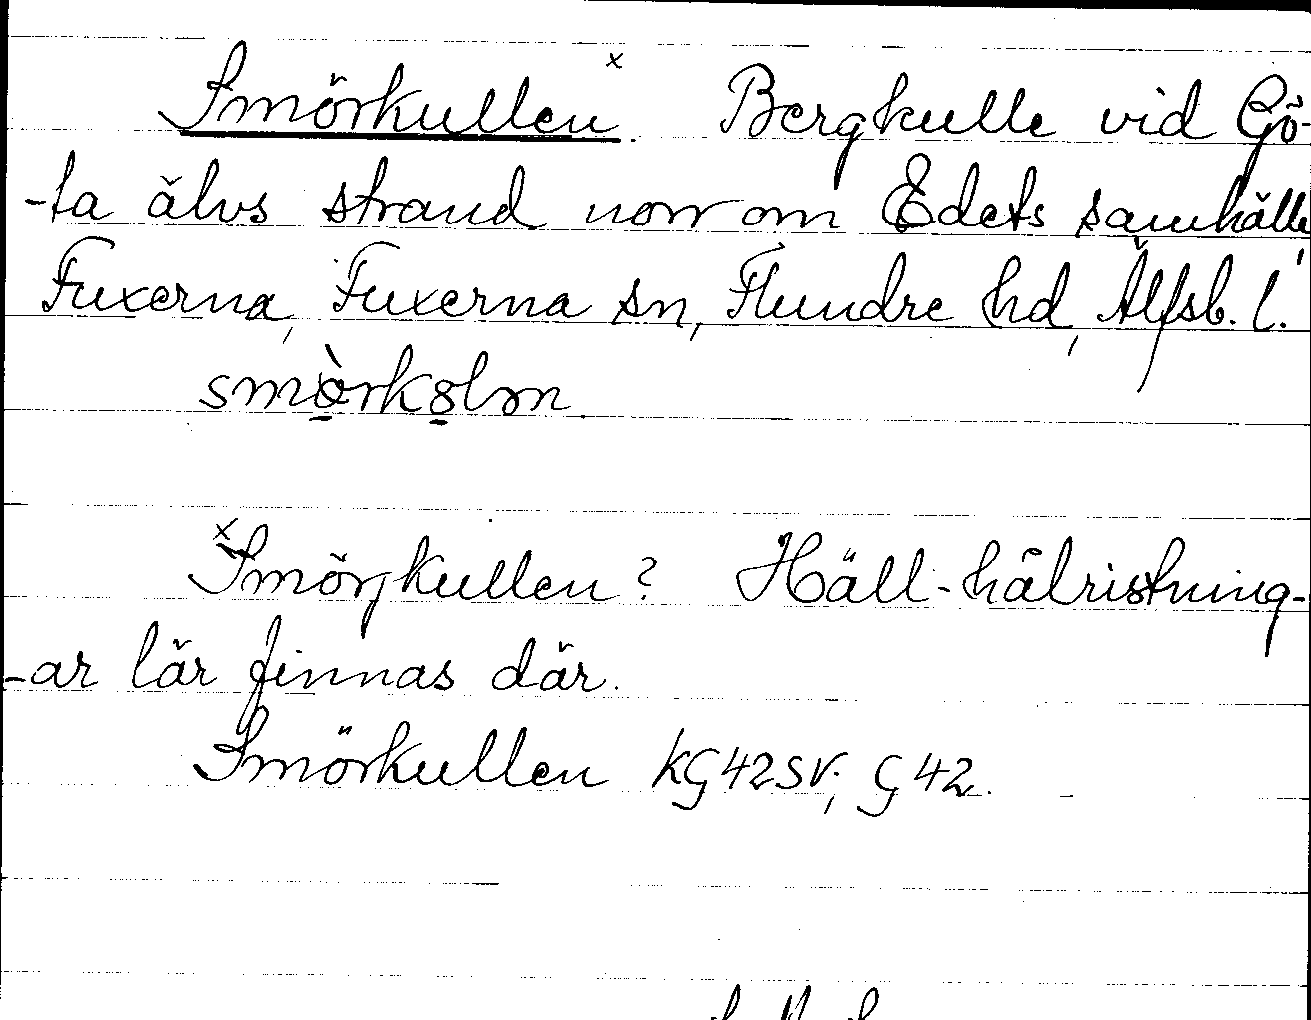 Smörkullen ˣ. Bergkulle vid Gö-
-ta älvs strand norr om Edets samhälle,
Fuxerna, Fuxerna sn, Flundre hd, Älfsb. l.
smö̀rkolm.
ˣSmörjkullen? Häll-hålristning-
-ar lär finnas där.
Smörkullen KG42SV; G42.